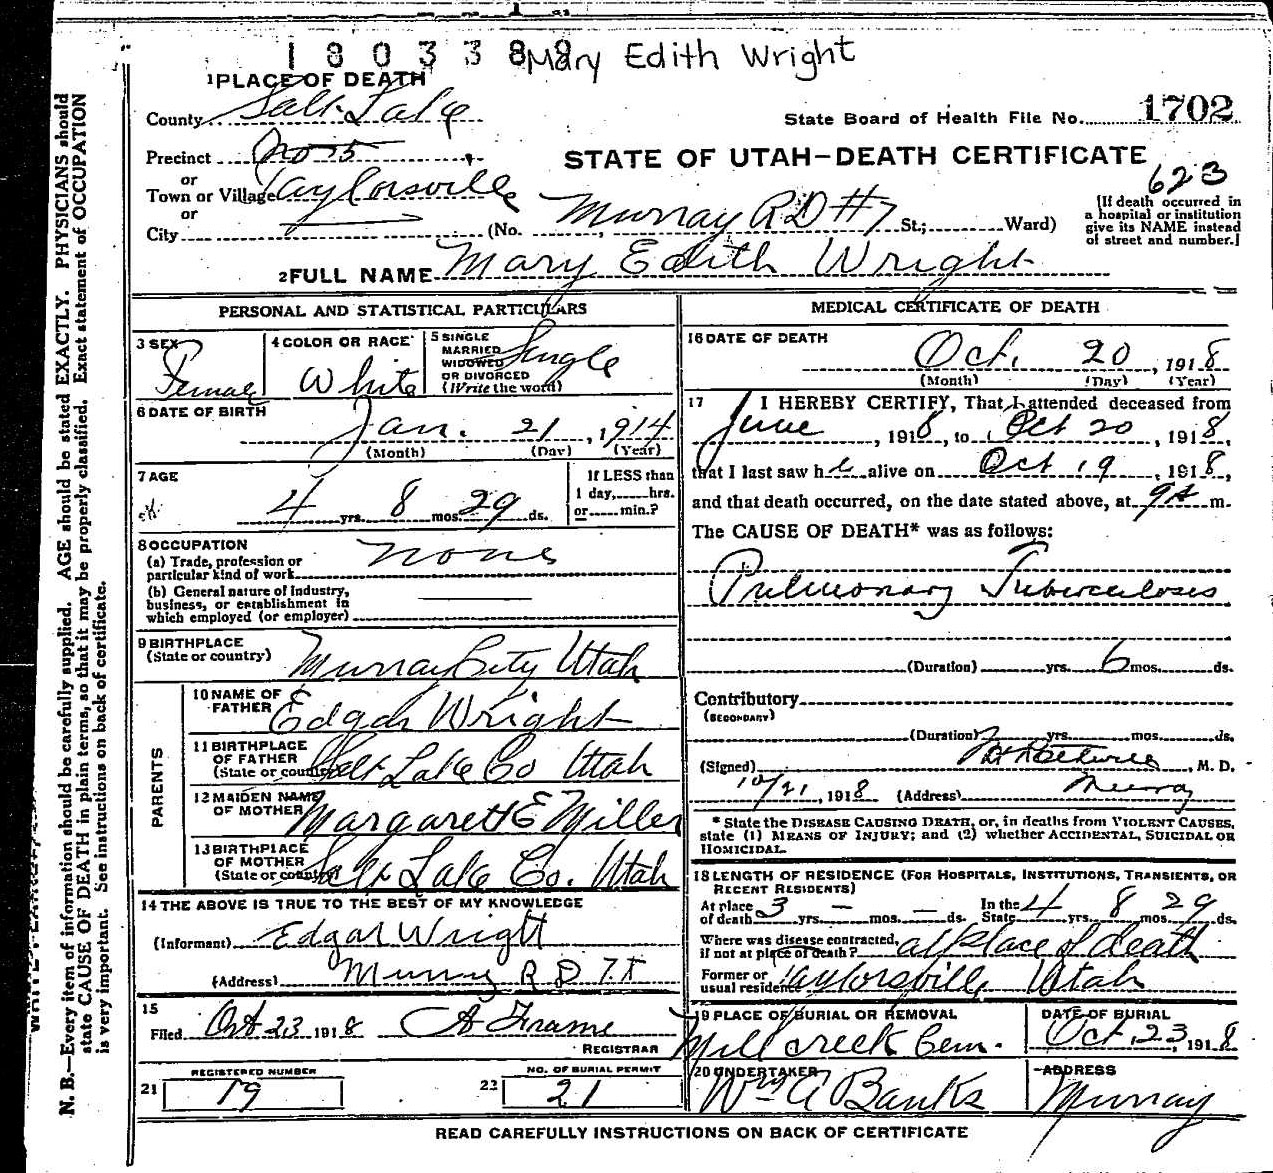 1803388 Mary Edith Wright
1 PLACE OF DEATH
County Salt Lake
State Board of Health File No. 1702
Precinct No 5
STATE OF UTAH—DEATH CERTIFICATE
623
or
Town or Village Taylorsville
or
City (No. Murray R D #7 St.; Ward)
[If death occurred in
a hospital or institution
give its NAME instead
of street and number.]
2 FULL NAME Mary Edith Wright
PERSONAL AND STATISTICAL PARTICULARS
3 SEX Female
4 COLOR OR RACE White
5 SINGLE
MARRIED
WIDOWED
OR DIVORCED
(Write the word) Single
6 DATE OF BIRTH
Jan. 21, 1914
(Month) (Day) (Year)
7 AGE
4 yrs. 8 mos. 29 ds.
If LESS than
1 day, hrs.
or min.?
8 OCCUPATION
(a) Trade, profession or
particular kind of work none
(b) General nature of industry,
business, or establishment in
which employed (or employer)
9 BIRTHPLACE
(State or country) Murray City Utah
PARENTS
10 NAME OF
FATHER Edgar Wright
11 BIRTHPLACE
OF FATHER
(State or country) Salt Lake Co Utah
12 MAIDEN NAME
OF MOTHER Margarett E Miller
13 BIRTHPLACE
OF MOTHER
(State or country) Salt Lake Co. Utah
14 THE ABOVE IS TRUE TO THE BEST OF MY KNOWLEDGE
(Informant) Edgar Wright
(Address) Murray R D 7
15
Filed Oct 23 1918 A Frame
REGISTRAR
REGISTERED NUMBER
21 19
NO. OF BURIAL PERMIT
22 21
MEDICAL CERTIFICATE OF DEATH
16 DATE OF DEATH
Oct. 20, 1918
(Month) (Day) (Year)
17 I HEREBY CERTIFY, That I attended deceased from
June, 1918, to Oct 20, 1918,
that I last saw her alive on Oct 19, 1918,
and that death occurred, on the date stated above, at 9 A m.
The CAUSE OF DEATH* was as follows:
Pulmonary Tuberculosis
(Duration) yrs. 6 mos. ds.
Contributory
(SECONDARY)
(Duration) yrs. mos. ds.
(Signed) , M. D.
10/21, 1918 (Address) Murray
* State the DISEASE CAUSING DEATH, or, in deaths from VIOLENT CAUSES,
state (1) MEANS OF INJURY; and (2) whether ACCIDENTAL, SUICIDAL OR
HOMICIDAL.
18 LENGTH OF RESIDENCE (FOR HOSPITALS, INSTITUTIONS, TRANSIENTS, OR
RECENT RESIDENTS)
At place
of death 3 yrs. — mos. — ds. In the
State 4 yrs. 8 mos. 29 ds.
Where was disease contracted,
if not at place of death? at place of death
Former or
usual residence Taylorsville Utah
19 PLACE OF BURIAL OR REMOVAL
Mill creek Cem.
DATE OF BURIAL
Oct. 23, 1918
20 UNDERTAKER
Wm A Banks
ADDRESS
Murray
READ CAREFULLY INSTRUCTIONS ON BACK OF CERTIFICATE
N. B.—Every item of information should be carefully supplied. AGE should be stated EXACTLY. PHYSICIANS should
state CAUSE OF DEATH in plain terms, so that it may be properly classified. Exact statement of OCCUPATION
is very important. See instructions on back of certificate.